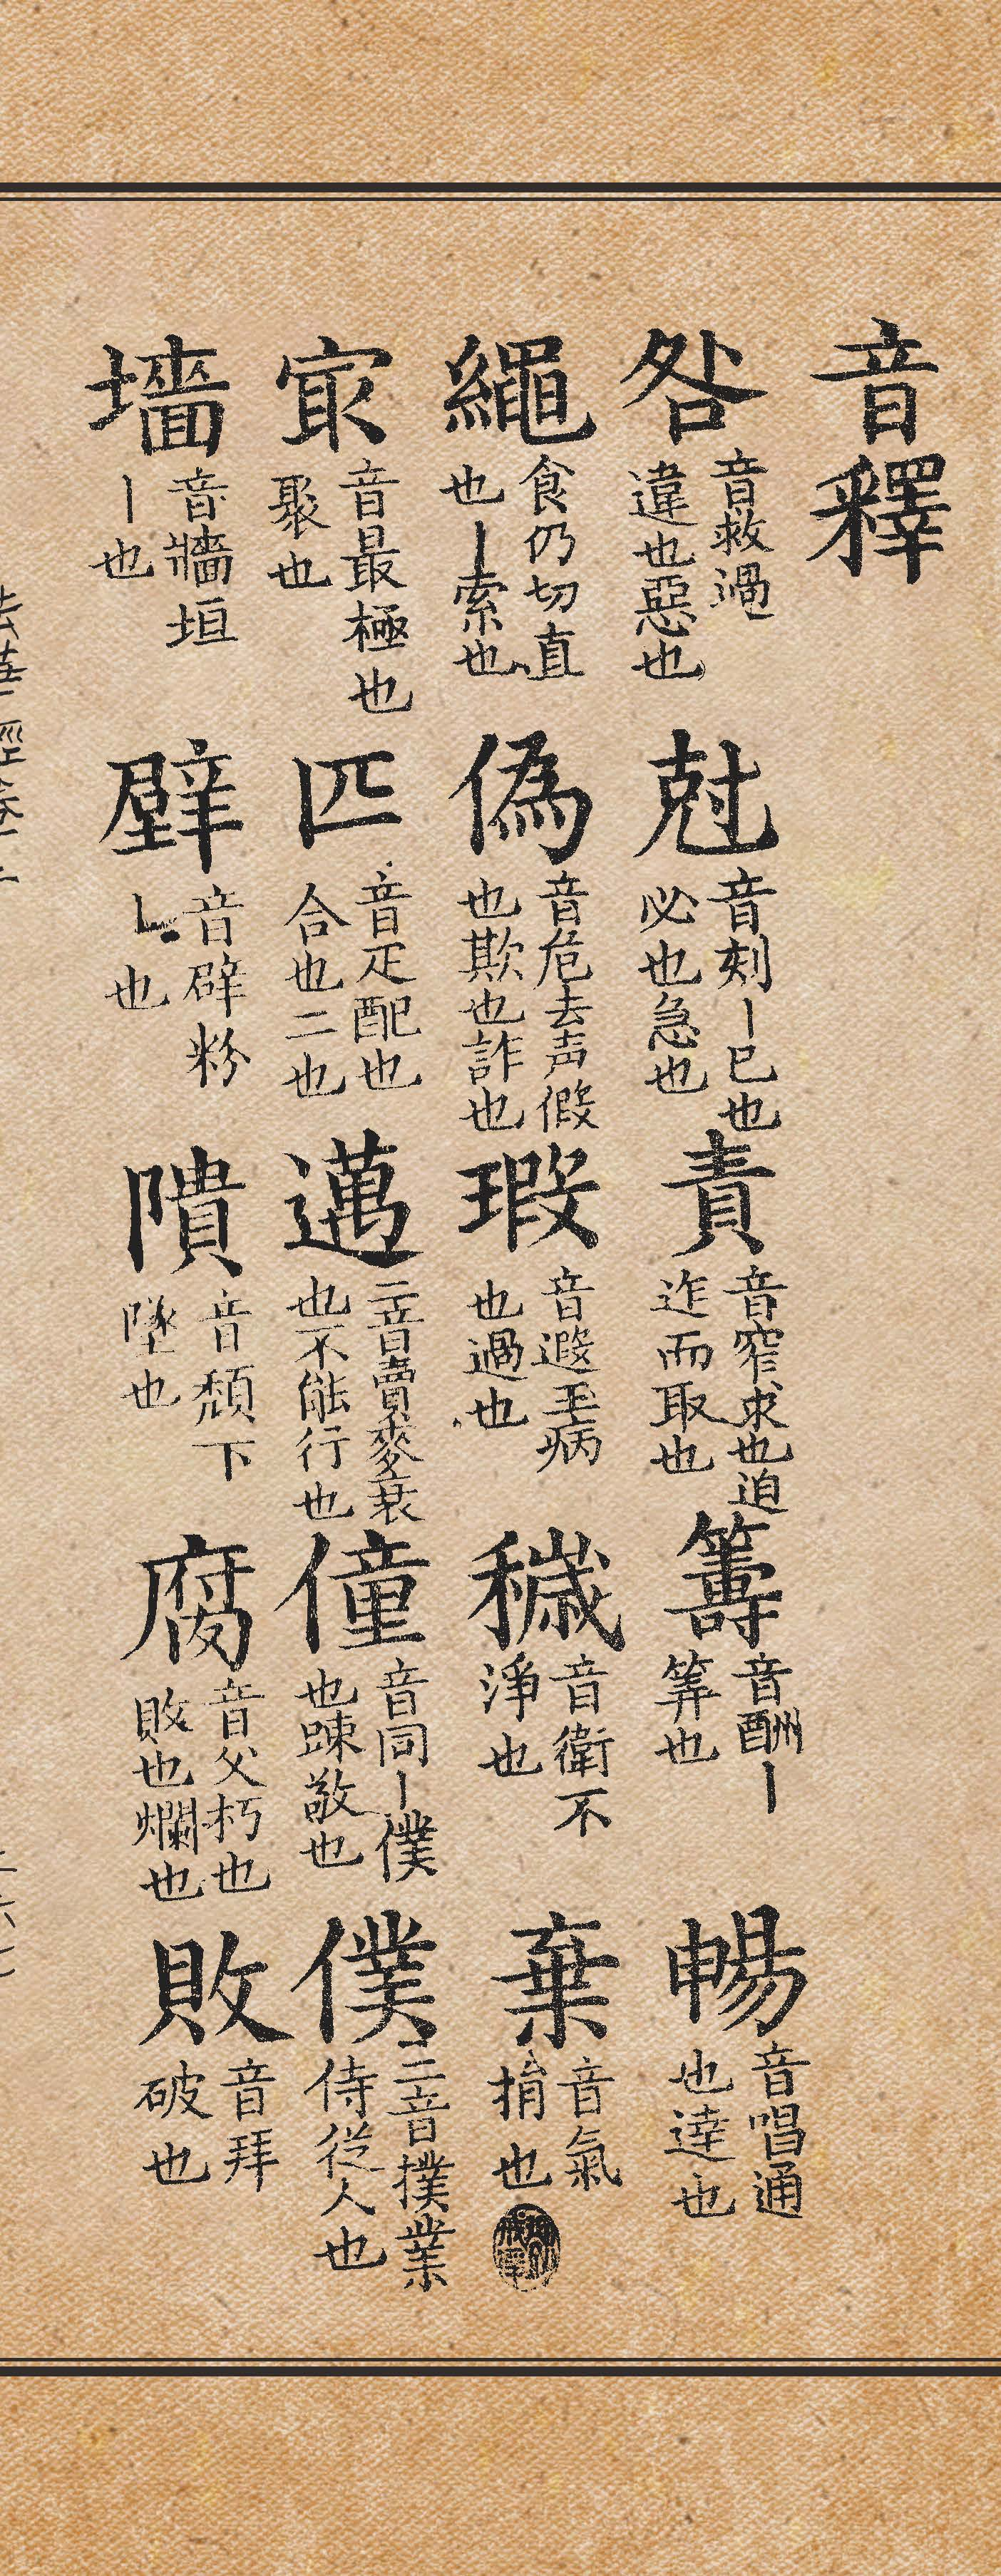 音釋
咎 音救過違也惡也 尅 音刻丨已也必也急也 責 音窄求也迫迮而取也 籌 音酬丨筭也 暢 音唱通也達也
繩 食仍切直也丨索也 偽 音危去声假也欺也詐也 瑕 音遐玉病也過也 穢 音衛不淨也 棄 音氣捐也
㝡 音最極也聚也 匹 音疋配也合也二也 邁 二音賣麥衰也不能行也 僮 音同丨僕也竦敬也 僕 二音撲業侍從人也
墻 音牆垣丨也 壁 音辟粉丨也 隤 音頽下墜也 腐 音父朽也敗也爛也 敗 音拜破也